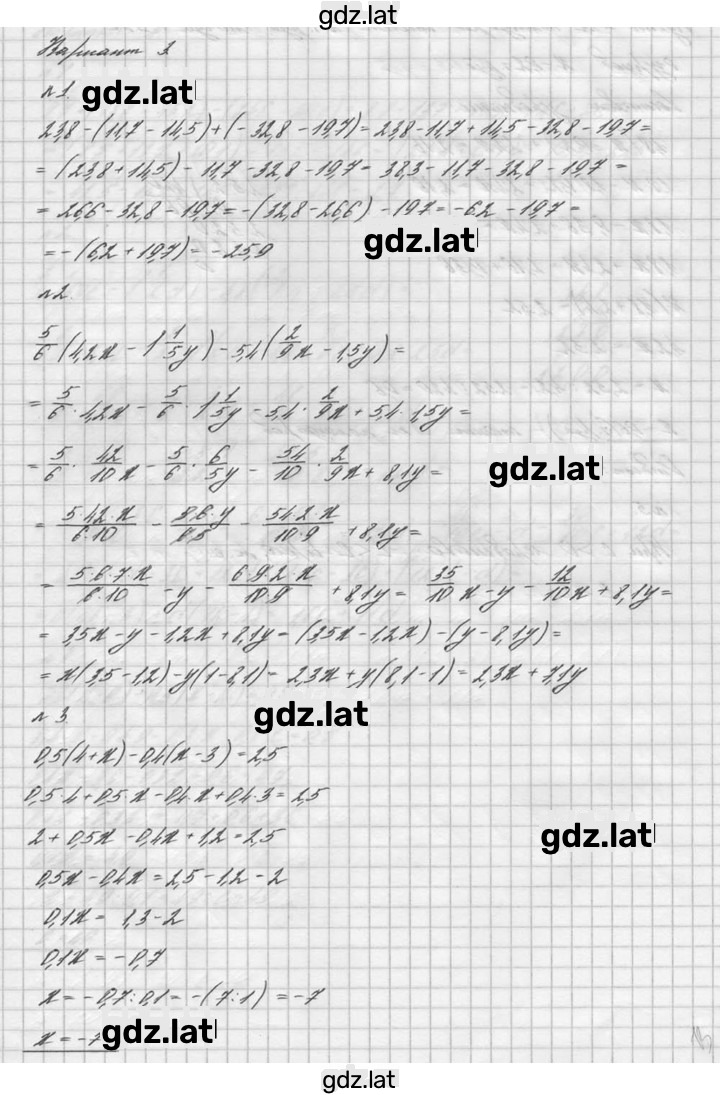 gdz.lat
Вариант 3
№1. gdz.lat
23,8-(11,7-14,5)+(-32,8-19,7)=23,8-11,7+14,5-32,8-19,7=
=(23,8+14,5)-11,7-32,8-19,7=38,3-11,7-32,8-19,7=
=26,6-32,8-19,7=-(32,8-26,6)-19,7=-6,2-19,7=
=-(6,2+19,7)=-25,9 gdz.lat
№2.
5/6(4,2x-1 1/5y)-5,4(2/9x-1,5y)=
=5/6·4,2x-5/6·1 1/5y-5,4·2/9x+5,4·1,5y=
=5/6·42/10x-5/6·6/5y-54/10·2/9x+8,1y= gdz.lat
=5·42·x/6·10-5·6·y/6·5-54·2·x/10·9+8,1y=
=5·6·7·x/6·10-y-6·9·2·x/10·9+8,1y=35/10x-y-12/10x+8,1y=
=3,5x-y-1,2x+8,1y=(3,5x-1,2x)-(y-8,1y)=
=x(3,5-1,2)-y(1-8,1)=2,3x+y(8,1-1)=2,3x+7,1y
№3. gdz.lat
0,5(4+x)-0,4(x-3)=2,5
0,5·4+0,5·x-0,4·x+0,4·3=2,5
2+0,5x-0,4x+1,2=2,5 gdz.lat
0,5x-0,4x=2,5-1,2-2
0,1x=1,3-2
0,1x=-0,7
x=-0,7:0,1=-(7:1)=-7
x=-7 gdz.lat
gdz.lat